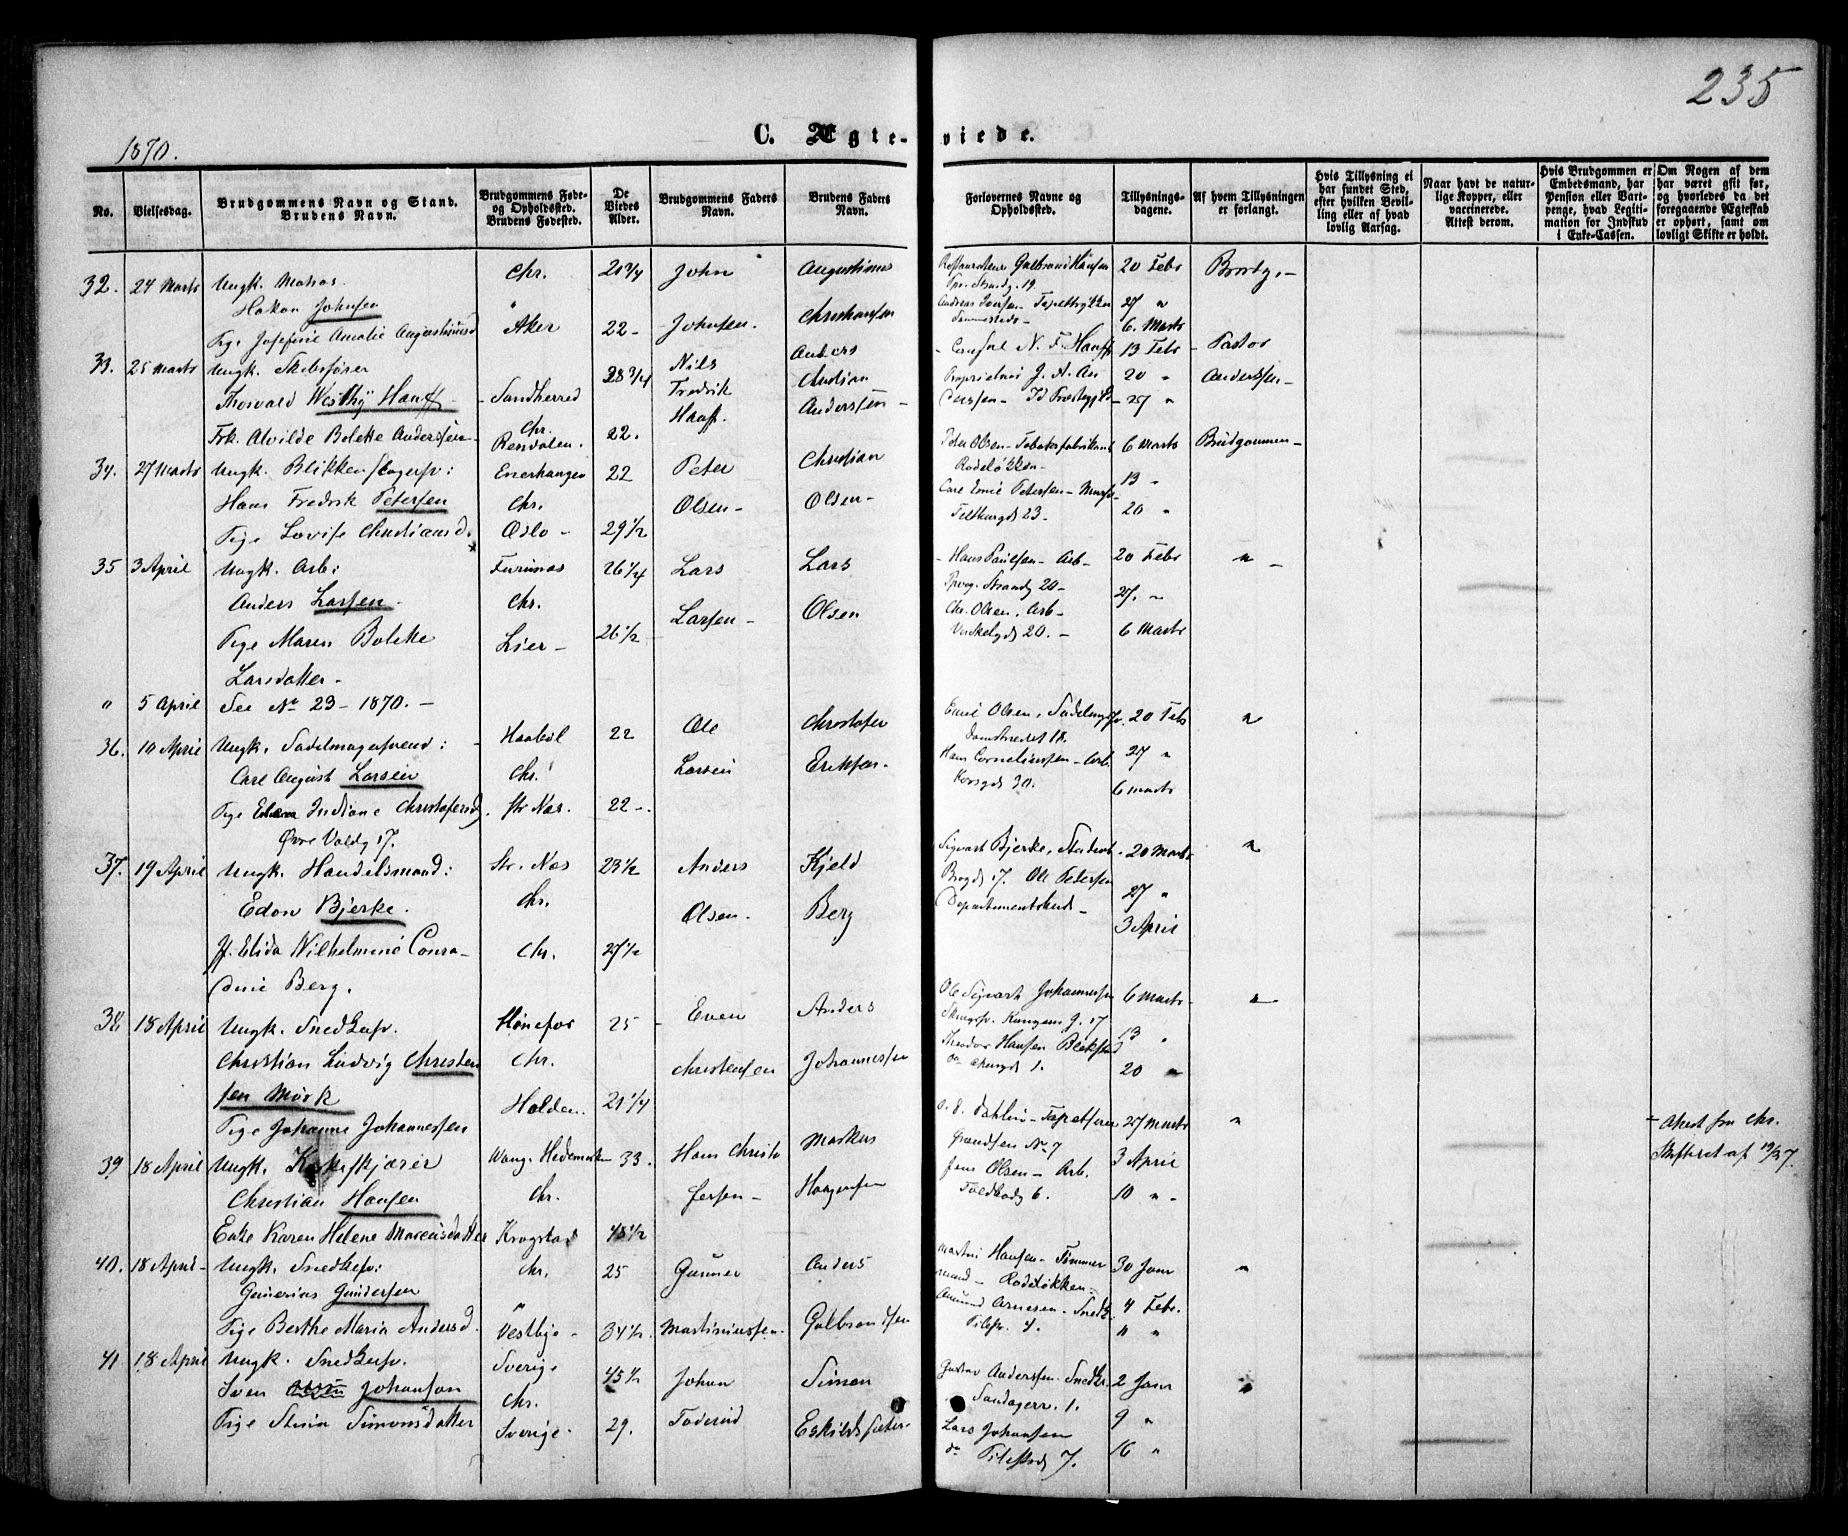 235
1870.
C. Ægte-viede.
No.
Vielsesdag.
Brudgommens Navn og Stand.
Brudens Navn.
Brudgommens Føde-
og Opholdssted.
Brudens Fødested.
De
Viedes
Alder.
Brudgommens Faders
Navn.
Brudens Faders
Navn.
Forlovernes Navne og
Opholdssted.
Tillysnings-
dagene.
Af hvem Tillysningen
er forlangt.
Hvis Tillysning ei
har fundet Sted,
efter hvilken Bevil-
ling eller af hvad
lovlig Aarsag.
Naar havt de natur-
lige Kopper, eller
vaccinerede.
Attest derom.
Hvis Brudgommen er
Embedsmand, har
Pension eller Vart-
penge, hvad Legiti-
mation for Indskud
i Enke-Cassen.
Om Nogen af dem
har været gift før,
og hvorledes da det
foregaaende Ægteskab
er ophørt, samt om
lovligt Skifte er holdt.
32. 24 Marts Ungk. Matros Chr. 21 3/4 John Augustinus
Hakon Johnsen " Johnsen. Christiansen
Pige Josefine Amalie Augustinusd Aker 22 -
20 Febr Brudg. -
27 "
6. Marts
33. 25 Marts Ungk. Skibsfører 28 3/4 Nils Anders
Thorvald Westhy Hauff Sandherred Fredrik Christian
Frk. Alvilde Bolette Anderssen Chr. Rendalen. 22. Hauff. Anderssen -
Consul N. F. Hauff 13 Febr Pastor
Proprietær J. A. An 20 " Anderssen -
27 "
34. 27 Marts Ungk. Blikkenslagersv: Enerhaugen 22 Peter Christian
Hans Fredrik Petersen Chr. Olsen - Olsen -
Pige Lovise Christiansd. Oslo - 29 1/2
Peder Olsen - Tobaksfabrikant 6 Marts Brudgommen -
Rodeløkken - 13 "
Carl Emil Petersen - 20 "
23 -
35 3 April Ungk. Arb: Furunæs 26 1/4 Lars Lars
Anders Larsen. Chr. Larsen - Olsen
Pige Maren Bolette Lier - 26 1/2
Larsdatter -
- Hans Paulsen - Arb - 20 Febr "
Strandg 20 - 27. "
Chr. Olsen. Arb - 6 Marts
Vinkelgd 20. -
" 5 April See No 23 - 1870. -
36. 10 April Ungk. Sadelmagersvend: Haabøl 22 Ole Christofer
Carl August Larsen Chr. Larsen Eriksen -
Pige Indiane Christofersd. Str Næs. 22 -
Øvre Voldg 17.
Emil Olsen, Sadelmgsv. 20 Febr "
Damstredet 18. 27 "
Hans Corneliussen - Arb. 6 Marts
Korsgd 30.
37. 19 April Ungk. Handelsmand: Str. Næs 23 1/2 Anders Kjeld
Edon Bjerke. Chr. Olsen. Berg
Jf. Elida Wilhelmine Conra- Chr. 27 1/2
dine Berg.
Sigvart Bjerke, 20 Marts "
17. Ole Petersen 27 "
Departementsbud - 3 April
38 18 April Ungk. Snedkersv. Hønefos 25 - Even Anders
Christian Ludvig Christen Chr. Christensen Johannessen
sen Mörk Holden. 21 1/4
Pige Johanne Johannessen
Ole Sigvart Johannessen 6 Marts "
Kungens g. 17 13 "
Theodor Hansen 20 "
1.
39 18 April Ungk. Vang. Hedemarken 33. Hans Christo Markus
Christian Hansen Chr. fersen - Haagensen
Enke Karen Helene Marcusdatter Krogstad 48 1/2
Dahlin - 27 Marts "
Grændsen No 7 3 April
Jens Olsen - Arb. 10 "
Toldbodg 6.
Attest fra Chr.
Skifteret af
40. 18 April - Ungk. Snedkersv: Chr. 25 Gunner Anders
Gunerius Gundersen "
Pige Berthe Maria Andersd. Vestbye - 34 1/2 Martiniussen. Gulbrandsen
Martin Hansen - Tømmer 30 Janr "
mand - Rodeløkken 4 Febr.
Amund Arnesen - Snedk. " "
4.
41 18 April Ungk. Snedkersv. Sverige 45 1/2 Johan Simon
Sven Johanson Chr.
Pige Stina Simonsdatter Sverige. 29. Toderud
Gustav Anderssen. Snedkr. 2 Janr "
1. 9 "
Lars Johansen 16 "
do 7.